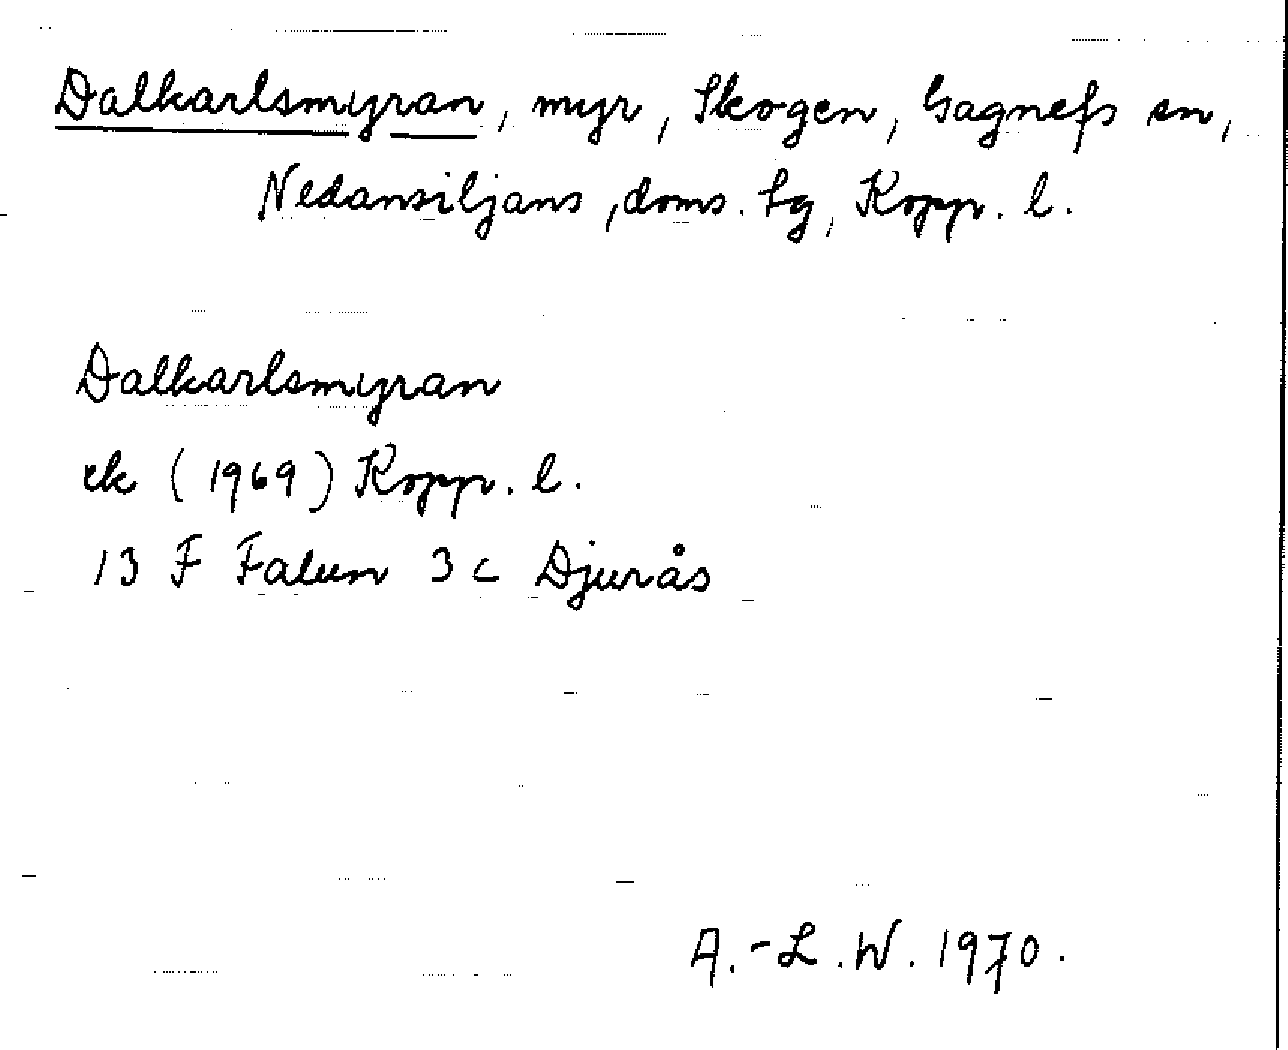 Dalkarlsmyran, myr, Skogen, Gagnefs sn,
Nedansiljans, doms. tg, Kopp. l.
Dalkarlsmyran
ek (1969) Kopp. l.
13 F Falun 3 c Djurås
A.-L.W. 1970.